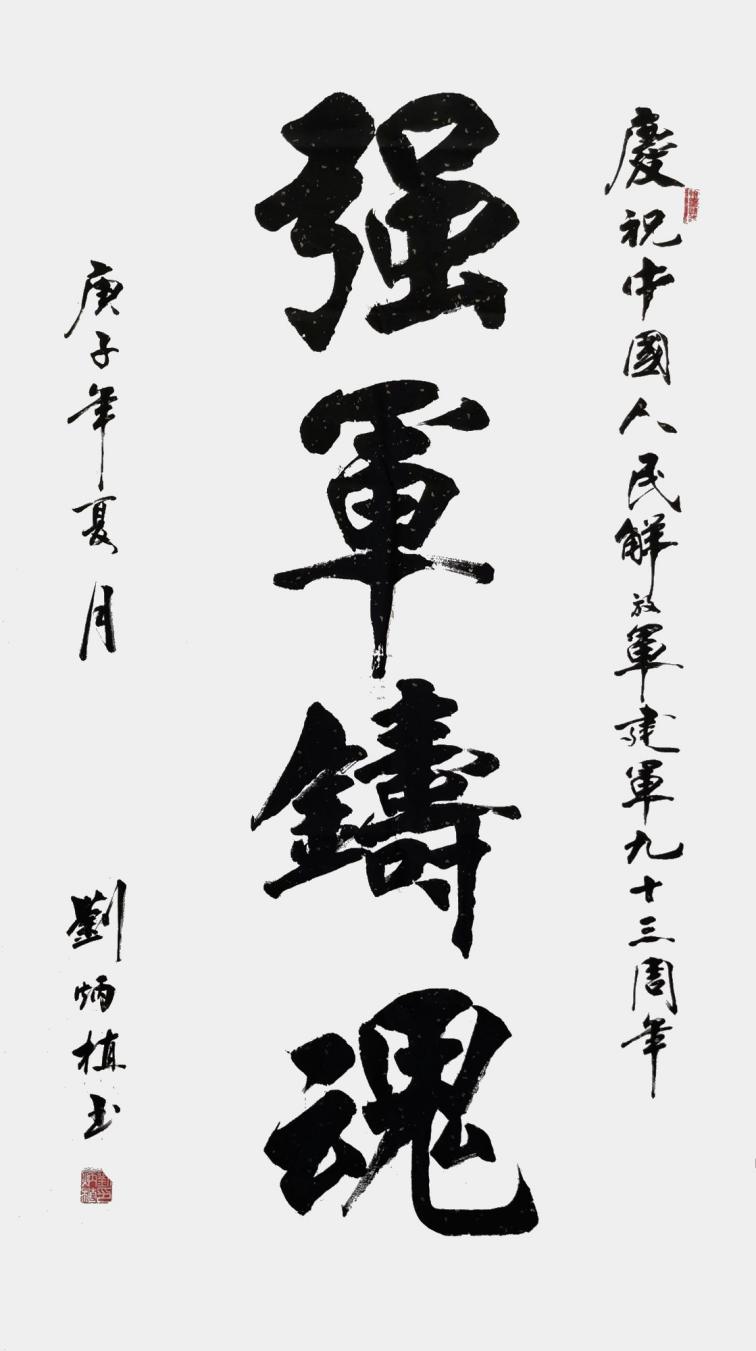 慶祝中國人民解放軍建軍九十三周年
强軍鑄魂
庚子年夏月 劉炳植书